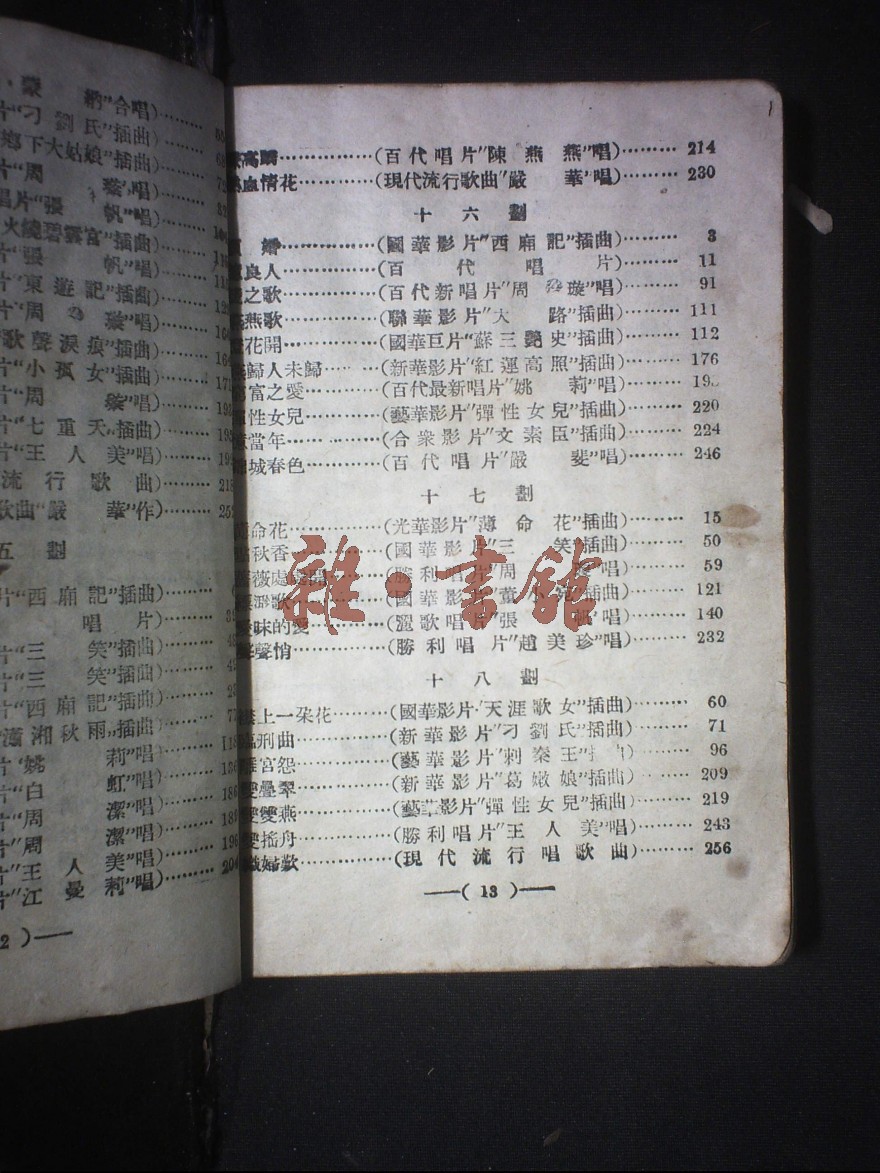 蒙 納"合唱)………
片"刁劉氏"插曲)……… 68
鄉下大姑娘"插曲)………
片"周 璇"唱)………
唱片"張 帆"唱)………
火燒碧雲宮"插曲)………
片"張 帆"唱)………
片"東遊記"插曲)………
片"周 璇"唱)………
歌聲淚痕"插曲)……… 164
片"小孤女"插曲)……… 171
片"周 璇"唱)………
片"七重天"插曲)………
片"王人美"唱)………
流行歌曲)………
歌曲"嚴 華"作)………
五 劃
片"西廂記"插曲)………
唱 片)………
片"三 笑"插曲)………
片"三 笑"插曲)………
片"西廂記"插曲)………
"瀟湘秋雨"插曲)………
片"姚 莉"唱)………
片"白 虹"唱)………
片"周 潔"唱)………
片"周 潔"唱)………
片"王人美"唱)………
片"江曼莉"唱)………
2 )—
高歌……………(百代唱片"陳燕燕"唱)……… 214
血情花……………(現代流行歌曲"嚴 華"唱)……… 230
十 六 劃
婚………………(國華影片"西廂記"插曲)……… 3
良人………………(百 代 唱 片)……… 11
之歌………………(百代新唱片"周 璇"唱)……… 91
燕歌………………(聯華影片"大 路"插曲)……… 111
花開………………(國華巨片"蘇三艷史"插曲)……… 112
歸人未歸…………(新華影片"紅運高照"插曲)……… 176
富之愛……………(百代最新唱片"姚 莉"唱)………
彈性女兒…………(藝華影片"彈性女兒"插曲)……… 220
當年………………(合衆影片"文素臣"插曲)……… 224
城春色……………(百代唱片"嚴 斐"唱)……… 246
十 七 劃
命花………………(光華影片"薄命花"插曲)……… 15
秋香………………(國華影片"三 笑"插曲)……… 50
薔薇處處開………(勝利唱片"周 唱)……… 59
歌…………………(國華影片"董小宛"插曲)……… 121
曖昧的愛…………(麗歌唱片"張 帆"唱)……… 140
聲悄………………(勝利唱片"趙美珍"唱)……… 232
十 八 劃
上一朶花…………(國華影片"天涯歌女"插曲)……… 60
刑曲………………(新華影片"刁劉氏"插曲)……… 71
宮怨………………(藝華影片"刺秦王"插曲)……… 96
雙疊翠……………(新華影片"葛嫩娘"插曲)……… 209
雙雙燕……………(藝華影片"彈性女兒"插曲)……… 219
雙搖舟……………(勝利唱片"王人美"唱)……… 243
織婦歎……………(現代流行唱歌曲)……… 256
—( 13 )—
雜·書館